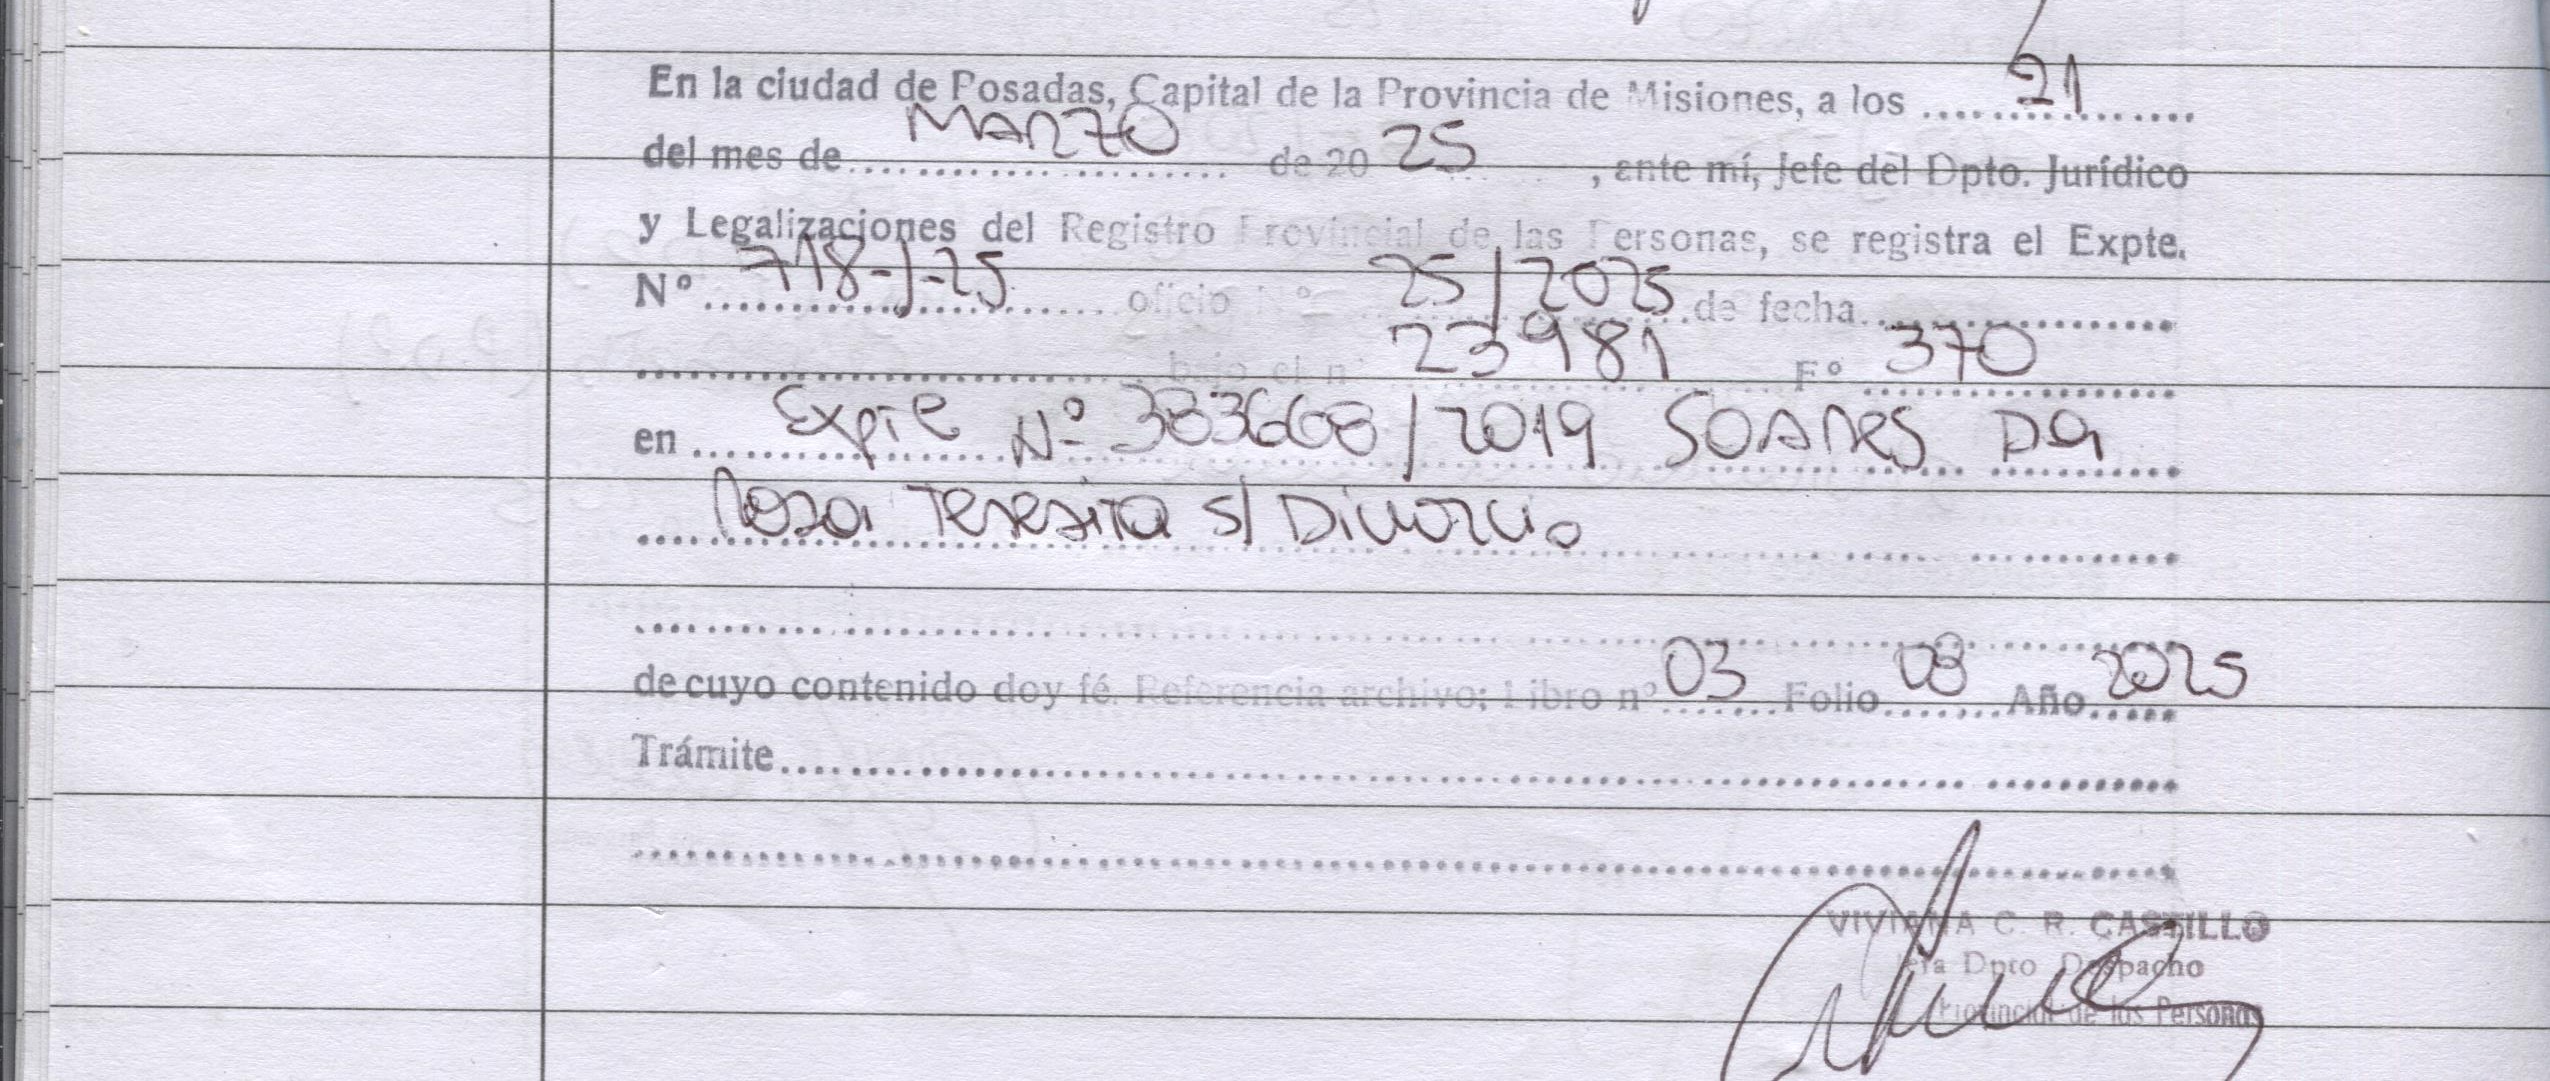 En la ciudad de Posadas, Capital de la Provincia de Misiones, a los ....21....
del mes de....MARZO.... de 20 25 , ante mí, Jefe del Dpto. Jurídico
y Legalizaciones del Registro Provincial de las Personas, se registra el Expte.
Nº....718-J-25.... oficio nº 25/2025 de fecha....
.... bajo el nº 23981 Fº 370
en....Expte Nº 383668/2019 SOARES DA
....Rosa Teresita s/ Divorcio
de cuyo contenido doy fé. Referencia archivo: Libro nº 03 Folio 08 Año 2025
Trámite....
VIVIANA C. R. CASTILLO
Jefa Dpto Despacho
Provincial de las Personas